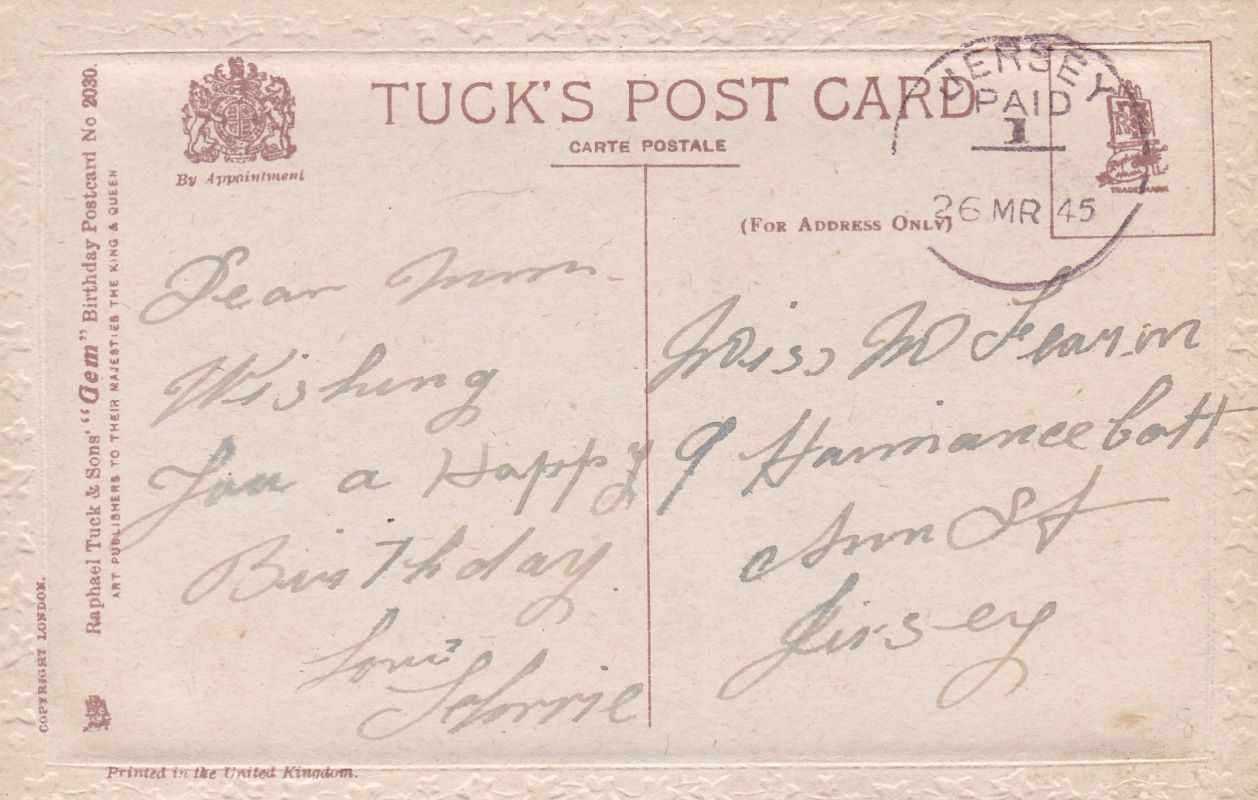 TUCK'S POST CARD
CARTE POSTALE
By Appointment
(FOR ADDRESS ONLY)
JERSEY
PAID
1
26 MR 45
TRADE MARK
Raphael Tuck & Sons' "Gem" Birthday Postcard No 2030.
ART PUBLISHERS TO THEIR MAJESTIES THE KING & QUEEN
COPYRIGHT LONDON.
Dear Mum
Wishing
You a Happy
Birthday
Love
Miss M
9
Ann St
Jersey
Printed in the United Kingdom.
8